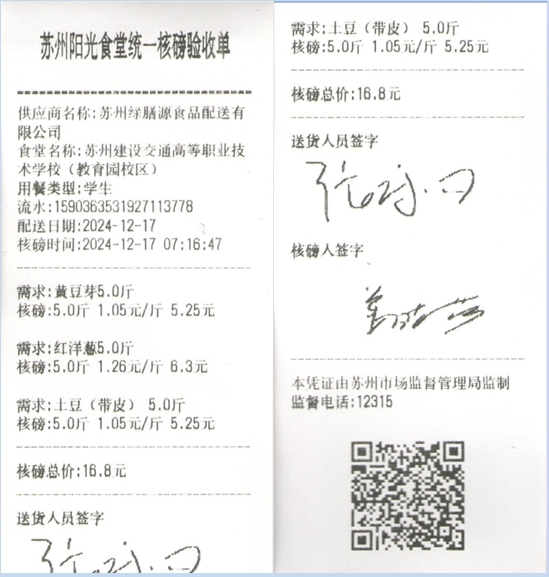 苏州阳光食堂统一核磅验收单
供应商名称:苏州绿膳源食品配送有
限公司
食堂名称:苏州建设交通高等职业技
术学校（教育园校区）
用餐类型:学生
流水:1590363531927113778
配送日期:2024-12-17
核磅时间:2024-12-17 07:16:47
需求:黄豆芽5.0斤
核磅:5.0斤 1.05元/斤 5.25元
需求:红洋葱5.0斤
核磅:5.0斤 1.26元/斤 6.3元
需求:土豆（带皮） 5.0斤
核磅:5.0斤 1.05元/斤 5.25元
核磅总价:16.8元
送货人员签字
需求:土豆（带皮） 5.0斤
核磅:5.0斤 1.05元/斤 5.25元
核磅总价:16.8元
送货人员签字
核磅人签字
本凭证由苏州市场监督管理局监制
监督电话:12315